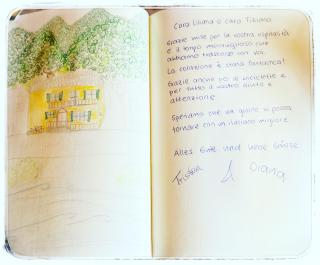 Cara Liliana e caro Tiziano
Grazie mille per la vostra ospitalità
e il tempo meraviglioso che
abbiamo trascorso con voi.
La colazione è stata fantastica!
Grazie anche per le biciclette e
per tutto il vostro aiuto e
attenzione
Speriamo che un giorno si possa
tornare con un italiano migliore
Alles Gute und liebe Grüsse
Tristan Diana